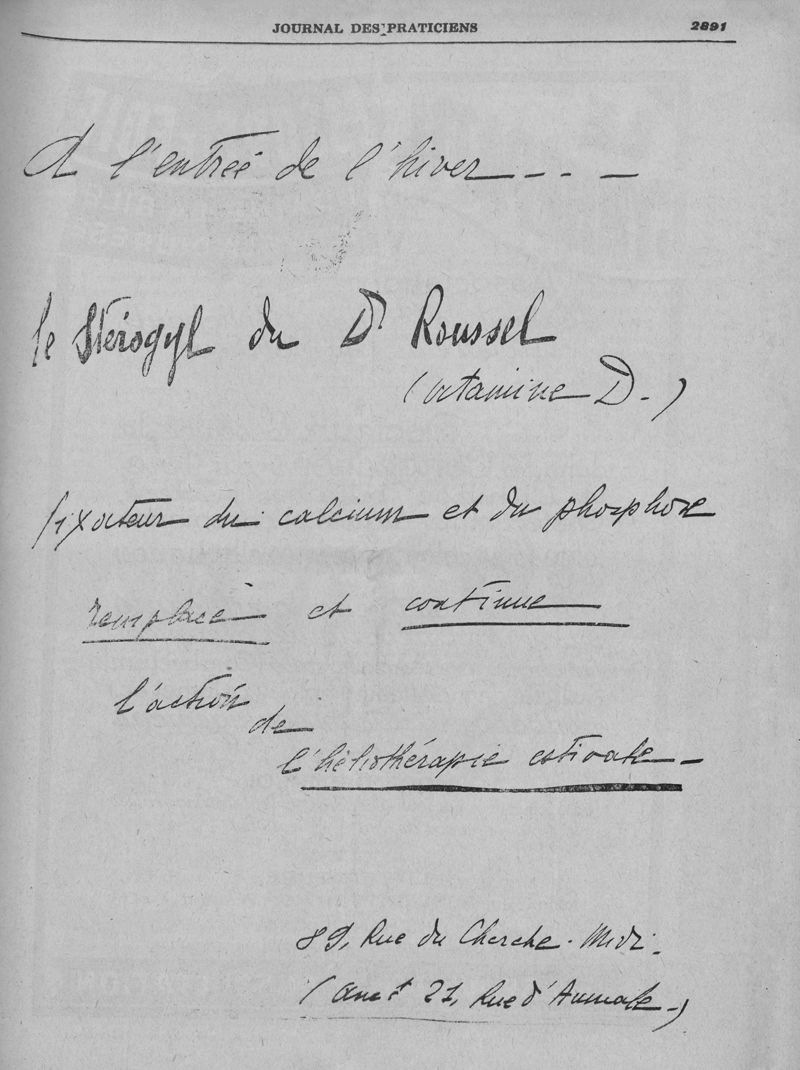 JOURNAL DES PRATICIENS 2891
A l'entrée de l'hiver - - -
le Stérogyl du Dr Roussel
(vitamine D.)
fixateur du calcium et du phosphore
remplace et continue
l'action
de
l'héliothérapie estivale -
89, Rue du Cherche-Midi.
(anct 21, Rue d'Aumale -)